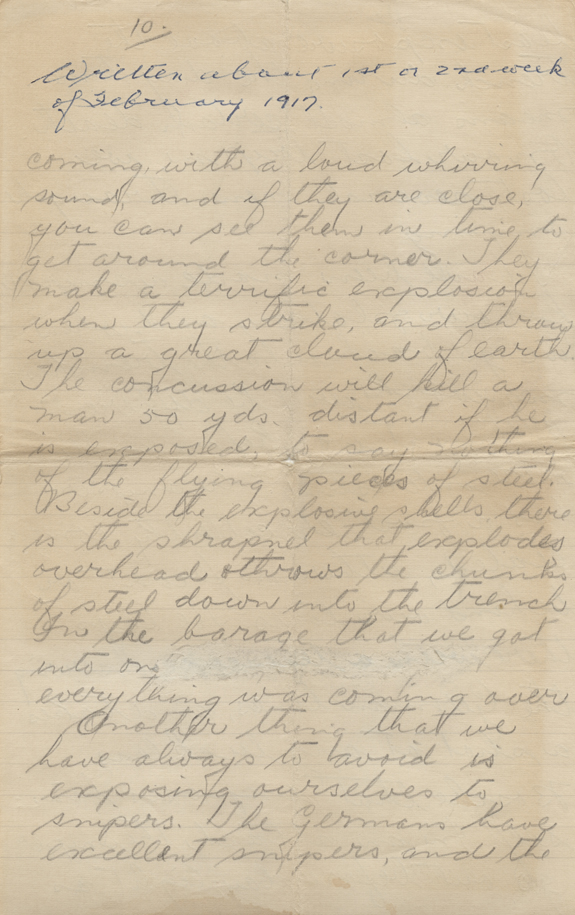 10.
Written about 1st or 2nd week
of February 1917.
coming, with a loud whirring
sound, and if they are close,
you can see them in time to
get around the corner. They
make a terrific explosion
when they strike, and throw
up a great cloud of earth.
The concussion will kill a
man 50 yds. distant if he
is exposed, to say nothing
of the flying pieces of steel.
Beside the explosive shells there
is the shrapnel that explodes
overhead & throws the chunks
of steel down into the trench
In the barage that we got
into on
everything was coming over
Another thing that we
have always to avoid is
exposing ourselves to
snipers. The Germans have
excellent snipers, and the